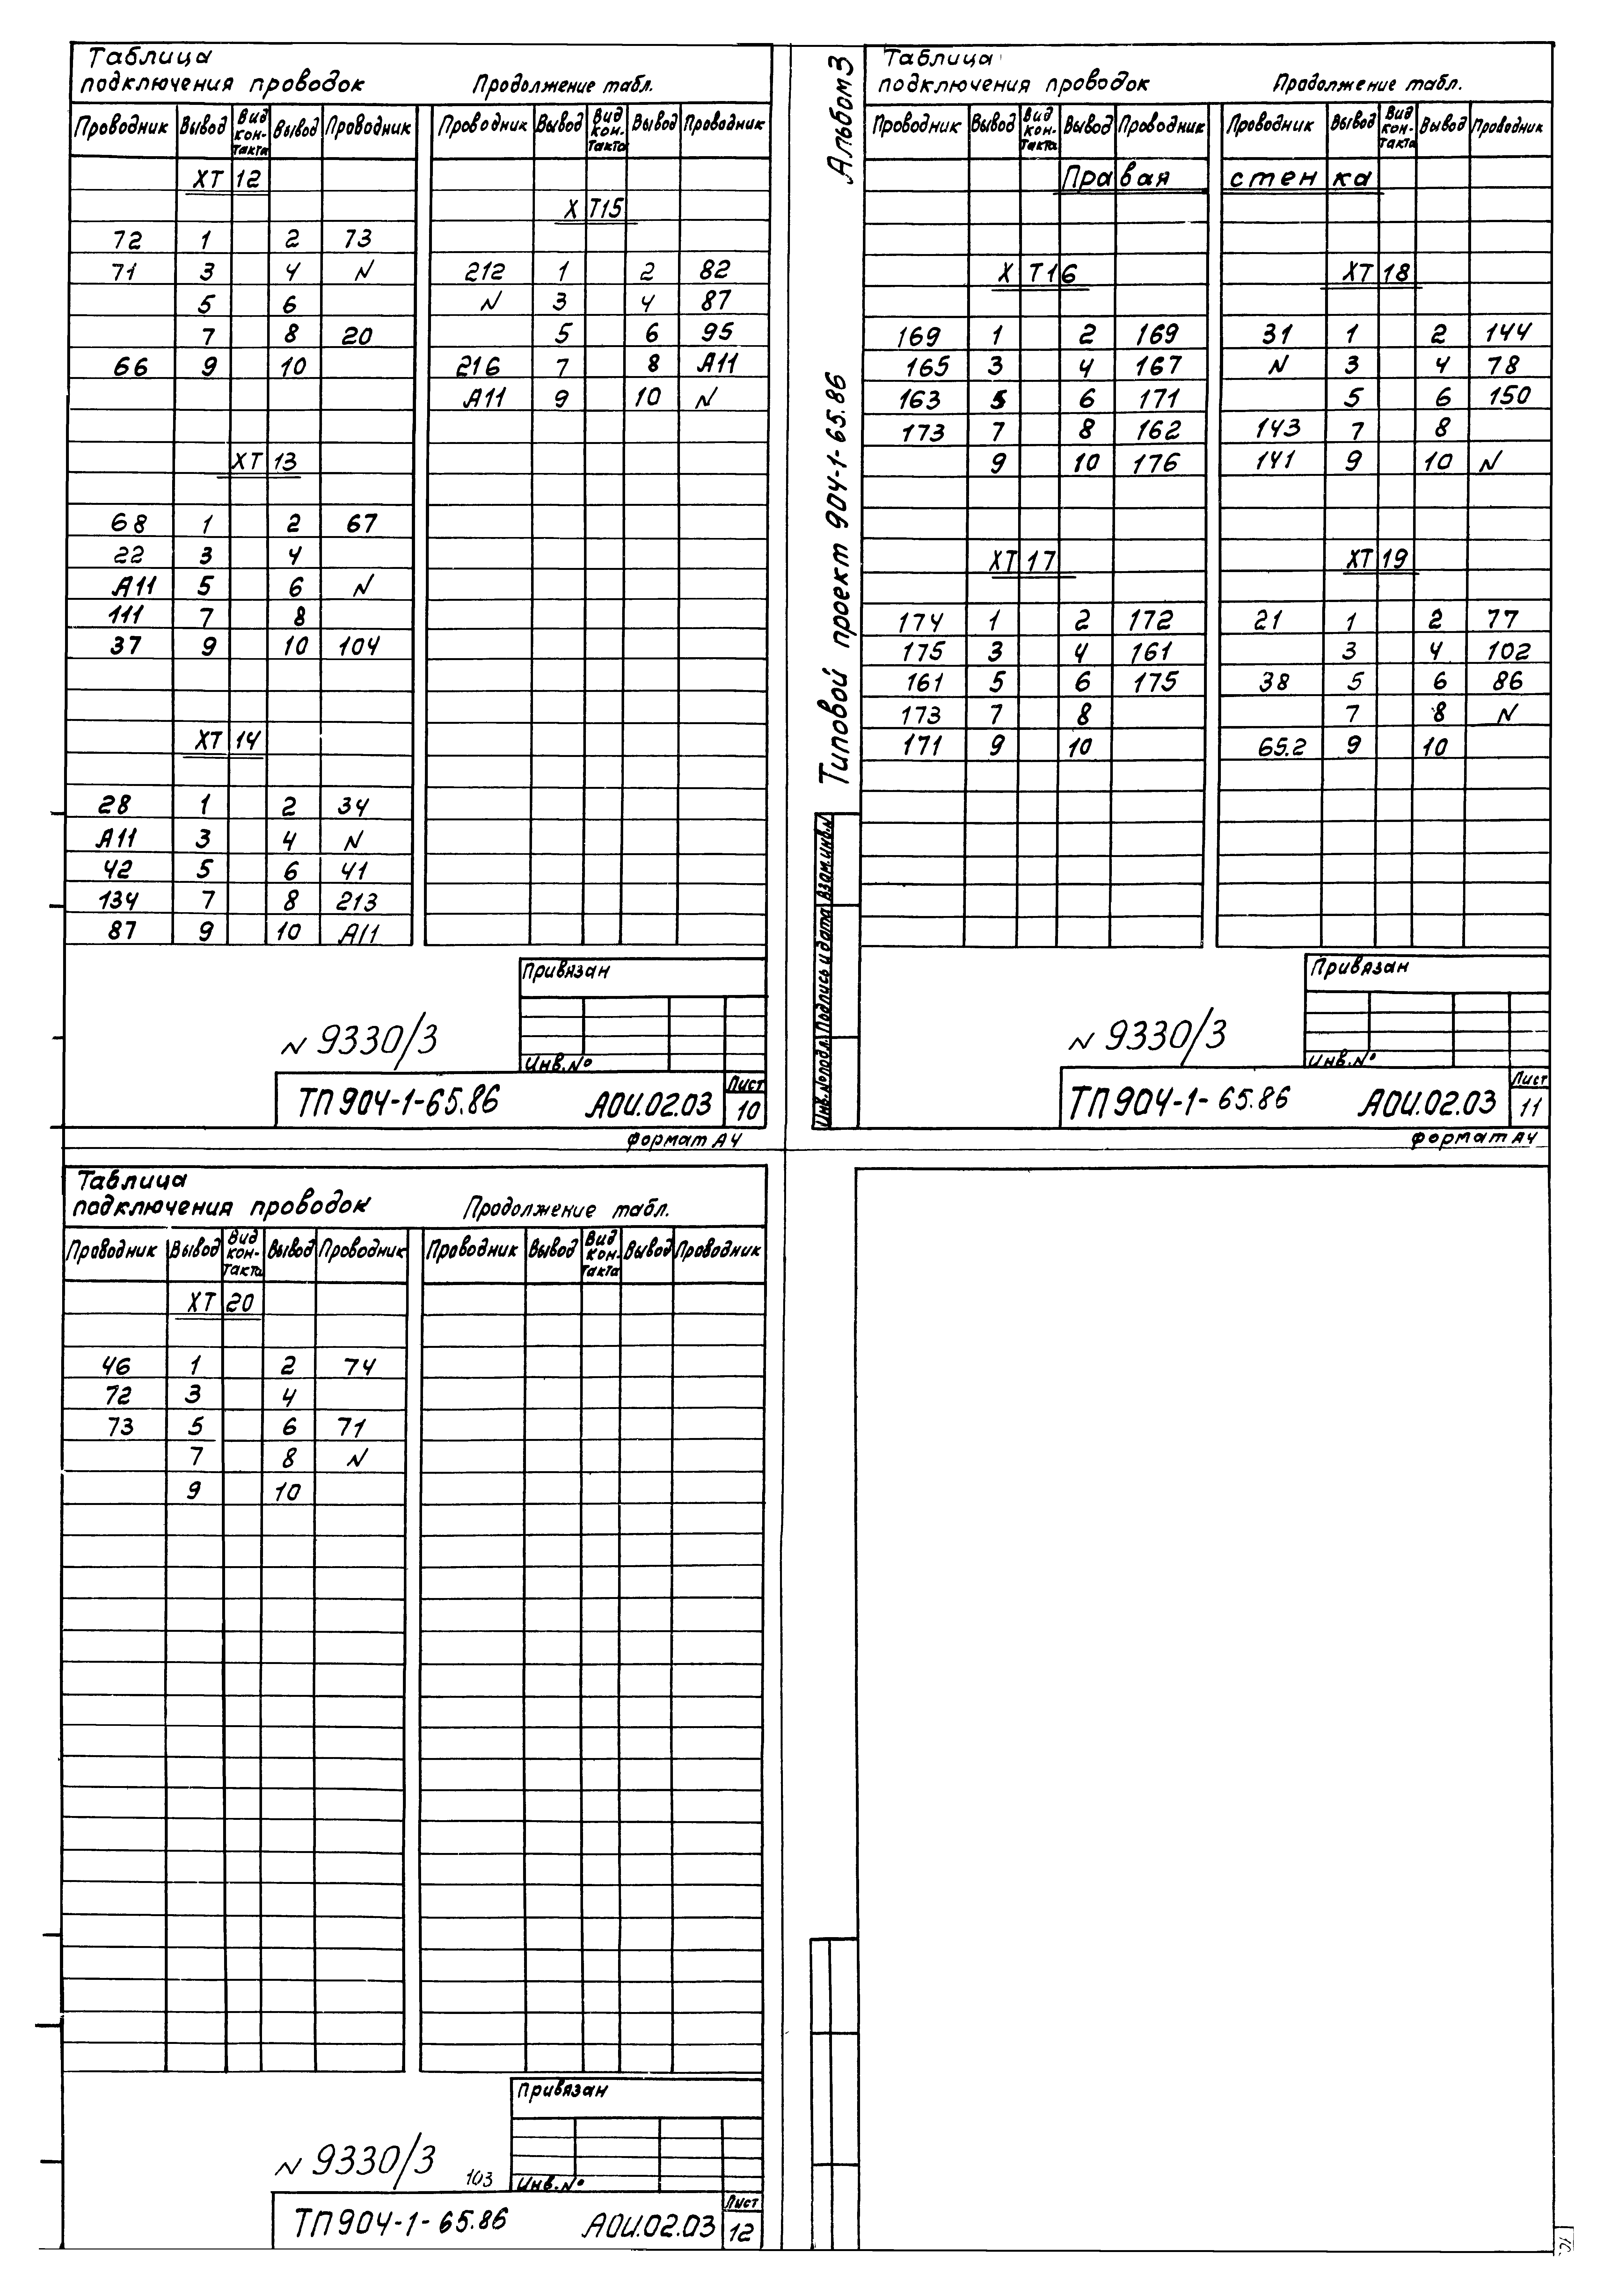 Таблица
подключения проводок Продолжение табл.
Проводник Вывод Вид кон-такта Вывод Проводник Проводник Вывод Вид кон-такта Вывод Проводник
ХТ 12
ХТ15
72 1 2 73
71 3 4 N 212 1 2 82
5 6 N 3 4 87
7 8 20 5 6 95
66 9 10 216 7 8 А11
А11 9 10 N
ХТ 13
68 1 2 67
22 3 4
А11 5 6 N
111 7 8
37 9 10 104
ХТ 14
28 1 2 34
А11 3 4 N
42 5 6 41
134 7 8 213
87 9 10 А11
Привязан
N 9330/3
Инв.№
ТП904-1-65.86 АОИ.02.03 Лист 10
Формат А4
Альбом 3
Типовой проект 904-1-65.86
Взам.инв.N
Подпись и дата
Инв.№подл.
Таблица
подключения проводок Продолжение табл.
Проводник Вывод Вид кон-такта Вывод Проводник Проводник Вывод Вид кон-такта Вывод Проводник
Правая стенка
ХТ16 ХТ 18
169 1 2 169 31 1 2 144
165 3 4 167 N 3 4 78
163 5 6 171 5 6 150
173 7 8 162 143 7 8
9 10 176 141 9 10 N
ХТ 17 ХТ 19
174 1 2 172 21 1 2 77
175 3 4 161 3 4 102
161 5 6 175 38 5 6 86
173 7 8 7 8 N
171 9 10 65.2 9 10
Привязан
N 9330/3
Инв.№
ТП904-1-65.86 АОИ.02.03 Лист 11
Формат А4
Таблица
подключения проводок Продолжение табл.
Проводник Вывод Вид кон-такта Вывод Проводник Проводник Вывод Вид кон-такта Вывод Проводник
ХТ 20
46 1 2 74
72 3 4
73 5 6 71
7 8 N
9 10
Привязан
N 9330/3 103
Инв.№
ТП904-1-65.86 АОИ.02.03 Лист 12